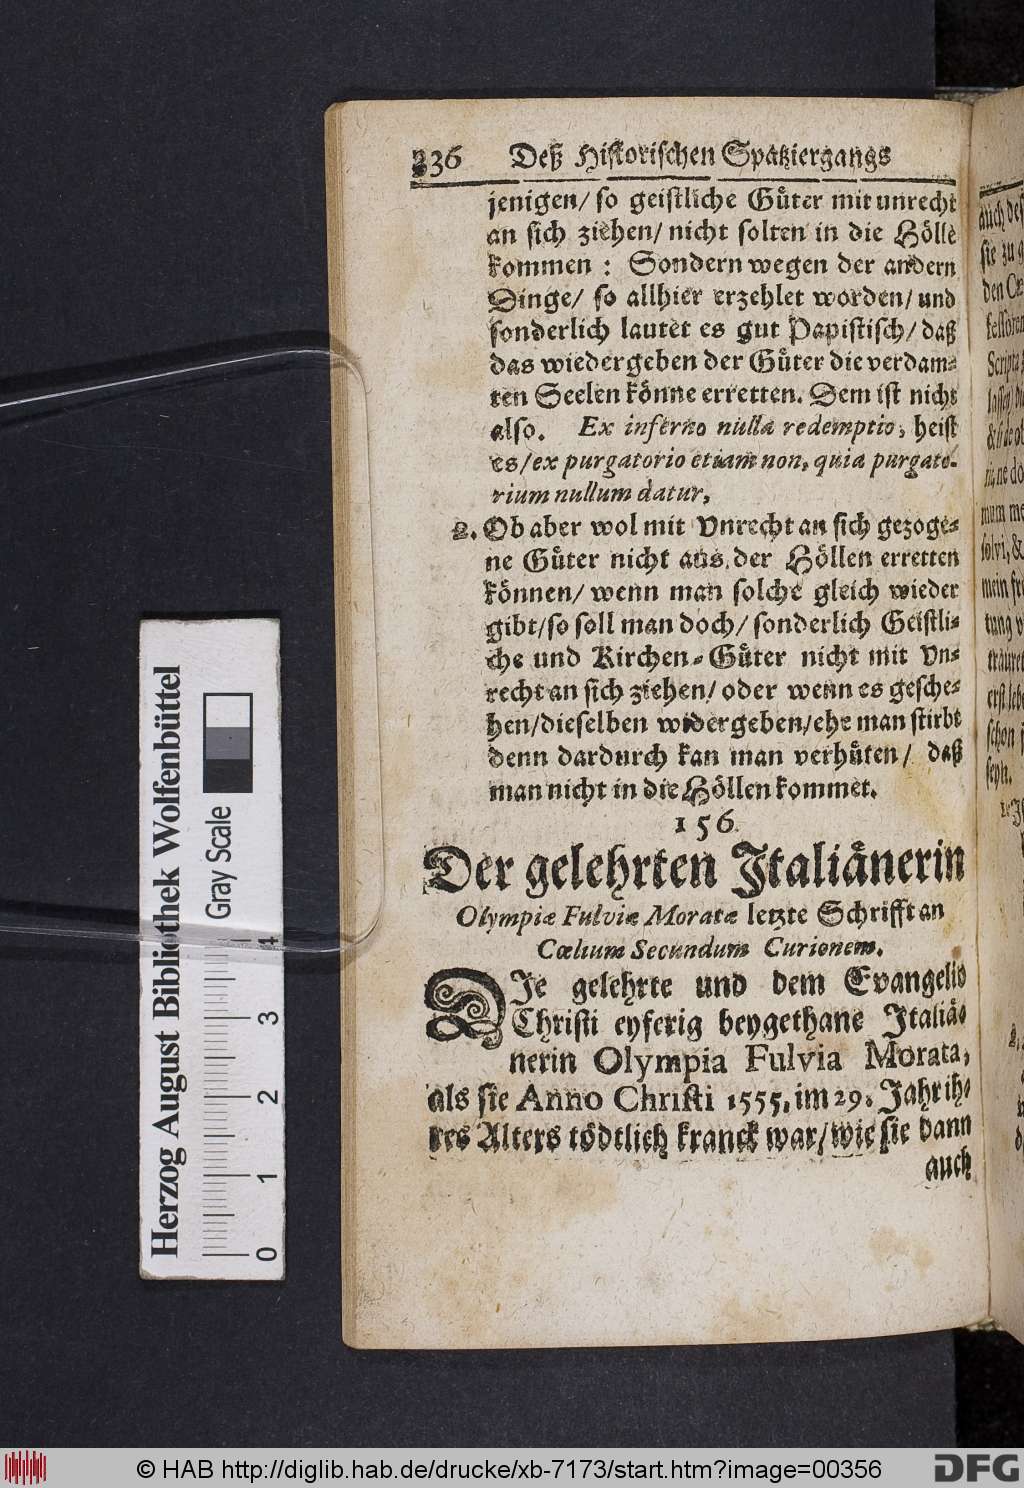 336 Deß Historischen Spatziergangs
jenigen/ so geistliche Güter mit unrecht
an sich ziehen/ nicht solten in die Hölle
kommen : Sondern wegen der andern
Dinge/ so allhier erzehlet worden/ und
sonderlich lautet es gut Papistisch/ daß
das wiedergeben der Güter die verdam-
ten Seelen könne erretten. Dem ist nicht
also. Ex inferno nulla redemptio, heist
es/ ex purgatorio etiam non, quia purgato-
rium nullum datur,
2. Ob aber wol mit Vnrecht an sich gezoge-
ne Güter nicht aus der Höllen erretten
können/ wenn man solche gleich wieder
gibt/ so soll man doch/ sonderlich Geistli-
che und Kirchen-Güter nicht mit Vn-
recht an sich ziehen/ oder wenn es gesche-
hen/ dieselben widergeben/ ehe man stirbt
denn dardurch kan man verhüten/ daß
man nicht in die Höllen kommet.
156
Der gelehrten Italiänerin
Olympiæ Fulviæ Moratæ letzte Schrifft an
Cœlium Secundum Curionem.
DIe gelehrte und dem Evangelio
Christi eyferig beygethane Italiä-
nerin Olympia Fulvia Morata,
als sie Anno Christi 1555. im 29. Jahr ih-
res Alters tödtlich kranck war/ wie sie dann
auch
auch des
sie zu g
Scripta
mein fr
tung v
schon
seyn.
Herzog August Bibliothek Wolfenbüttel
Gray Scale
0 1 2 3 4
© HAB http://diglib.hab.de/drucke/xb-7173/start.htm?image=00356
DFG